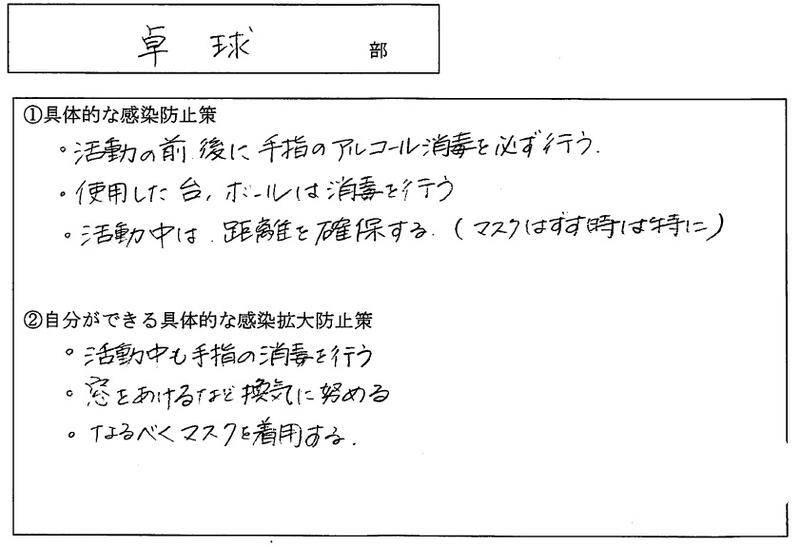 卓球 部
①具体的な感染防止策
・活動の前後に手指のアルコール消毒を必ず行う.
・使用した台,ボールは消毒を行う
・活動中は距離を確保する.(マスクはずす時は特に)
②自分ができる具体的な感染拡大防止策
・活動中も手指の消毒を行う
・窓をあけるなど換気に努める
・なるべくマスクを着用する.